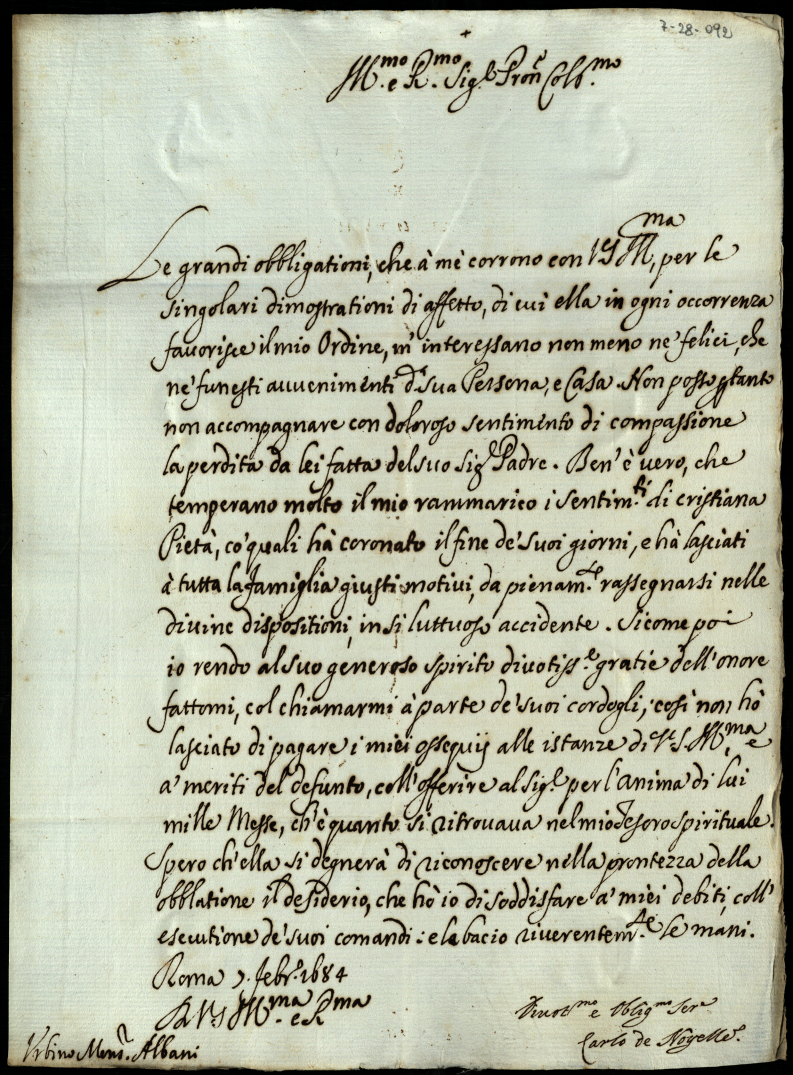 7-28-092
+
Ill.mo e R.mo Sig.r Pron Col.mo
Le grandi obbligationi, che à mè corrono con VS Ill.ma, per le
singolari dimostrationi di affetto, di cui ella in ogni occorrenza
favorisce il mio Ordine, m'interessano non meno ne' felici, che
ne' funesti avvenimenti di sua Persona, e Casa. Non posso ptanto
non accompagnare con doloroso sentimento di compassione
la perdita da lei fatta del suo Sig.r Padre. Ben' è vero, che
temperano molto il mio rammarico i sentim.ti di cristiana
Pietà, co' quali hà coronato il fine de' suoi giorni, e hà lasciati
à tutta la famiglia giusti motivi, da pienam.te rassegnarsi nelle
divine dispositioni, in si luttuoso accidente. Sicome poi
io rendo al suo generoso spirito divotiss.e gratie dell'onore
fattomi, col chiamarmi à parte de' suoi cordogli, così non hò
lasciato di pagare i miei ossequij alle istanze di V.S. Ill.ma, e
a' meriti del defunto, coll'offerire al Sig.r per l'anima di lui
mille Messe, ch'è quanto si ritrovava nel mio Tesoro spirituale.
Spero ch'ella si degnerà di riconoscere nella prontezza della
obblatione il desiderio, che hò io di soddisfare a' miei debiti, coll'
esecutione de' suoi comandi: e le bacio riverentem.te le mani.
Roma 9. Febr.o 1684
D. V.S Ill.ma e R.ma
Divot.mo e Oblig.mo Ser.e
Carlo de Noyelle.
Urbino Mons.r Albani